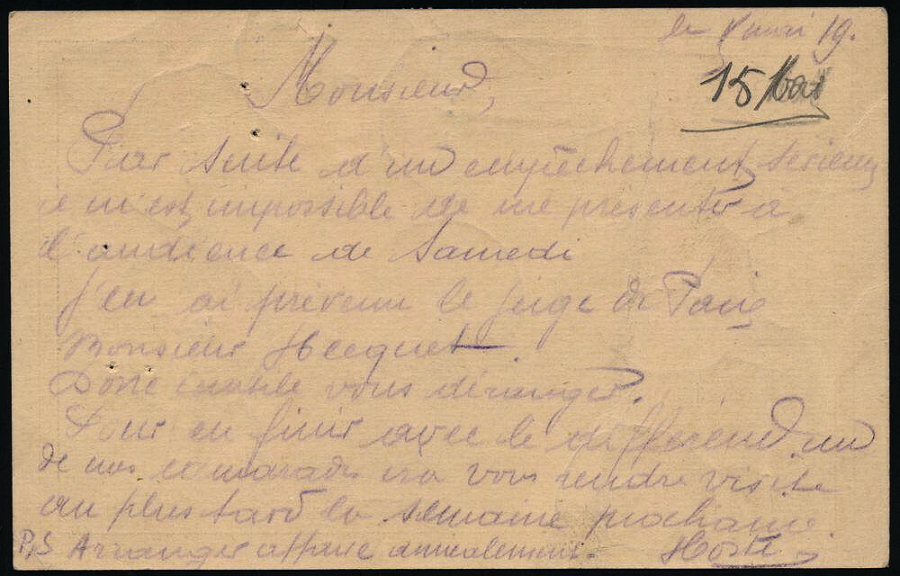 le 8 mai 19.
15
Monsieur,
Par suite d'un empêchement, serieux
il m'est, impossible de me présenter à
l'audience de Samedi
j'en ai prévenu le juge de Paix
Monsieur Hecquet
Donc inutile vous déranger.
Pour en finir avec le différend un
de nos camarades ira vous rendre visite
au plus tard la semaine prochaine
P,S Arranger affaire amicalement.